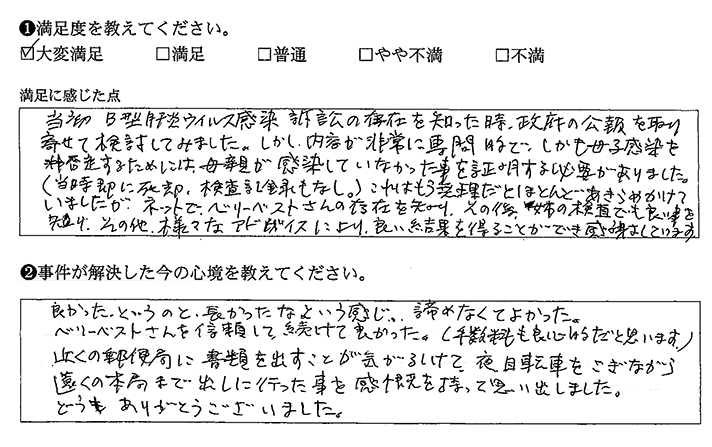 ❶満足度を教えてください。
☑大変満足 □満足 □普通 □やや不満 □不満
満足に感じた点
当初 B型肝炎ウイルス感染 訴訟の存在を知った時、政府の公報を取り
寄せて検討してみました。しかし、内容が非常に専門的で、しかも母子感染を
否定するためには、母親が感染していなかった事を証明する必要がありました。
(当時既に死去、検査記録もなし。)これはもう無理だとほとんどあきらめかけて
いましたが、ネットで、ベリーベストさんの存在を知り、その後、姉の検査でも良い事を
知り、その他、様々なアドバイスにより、良い結果を得ることができ感謝しています
❷事件が解決した今の心境を教えてください。
良かった、というのと、長かったなという感じ。諦めなくてよかった。
ベリーベストさんを信頼して、続けて良かった。(手数料も良心的だと思います)
近くの郵便局に書類を出すことが気がひけて、夜、自転車をこぎながら
遠くの本局まで出しに行った事を感慨を持って思い出しました。
どうも ありがとうございました。